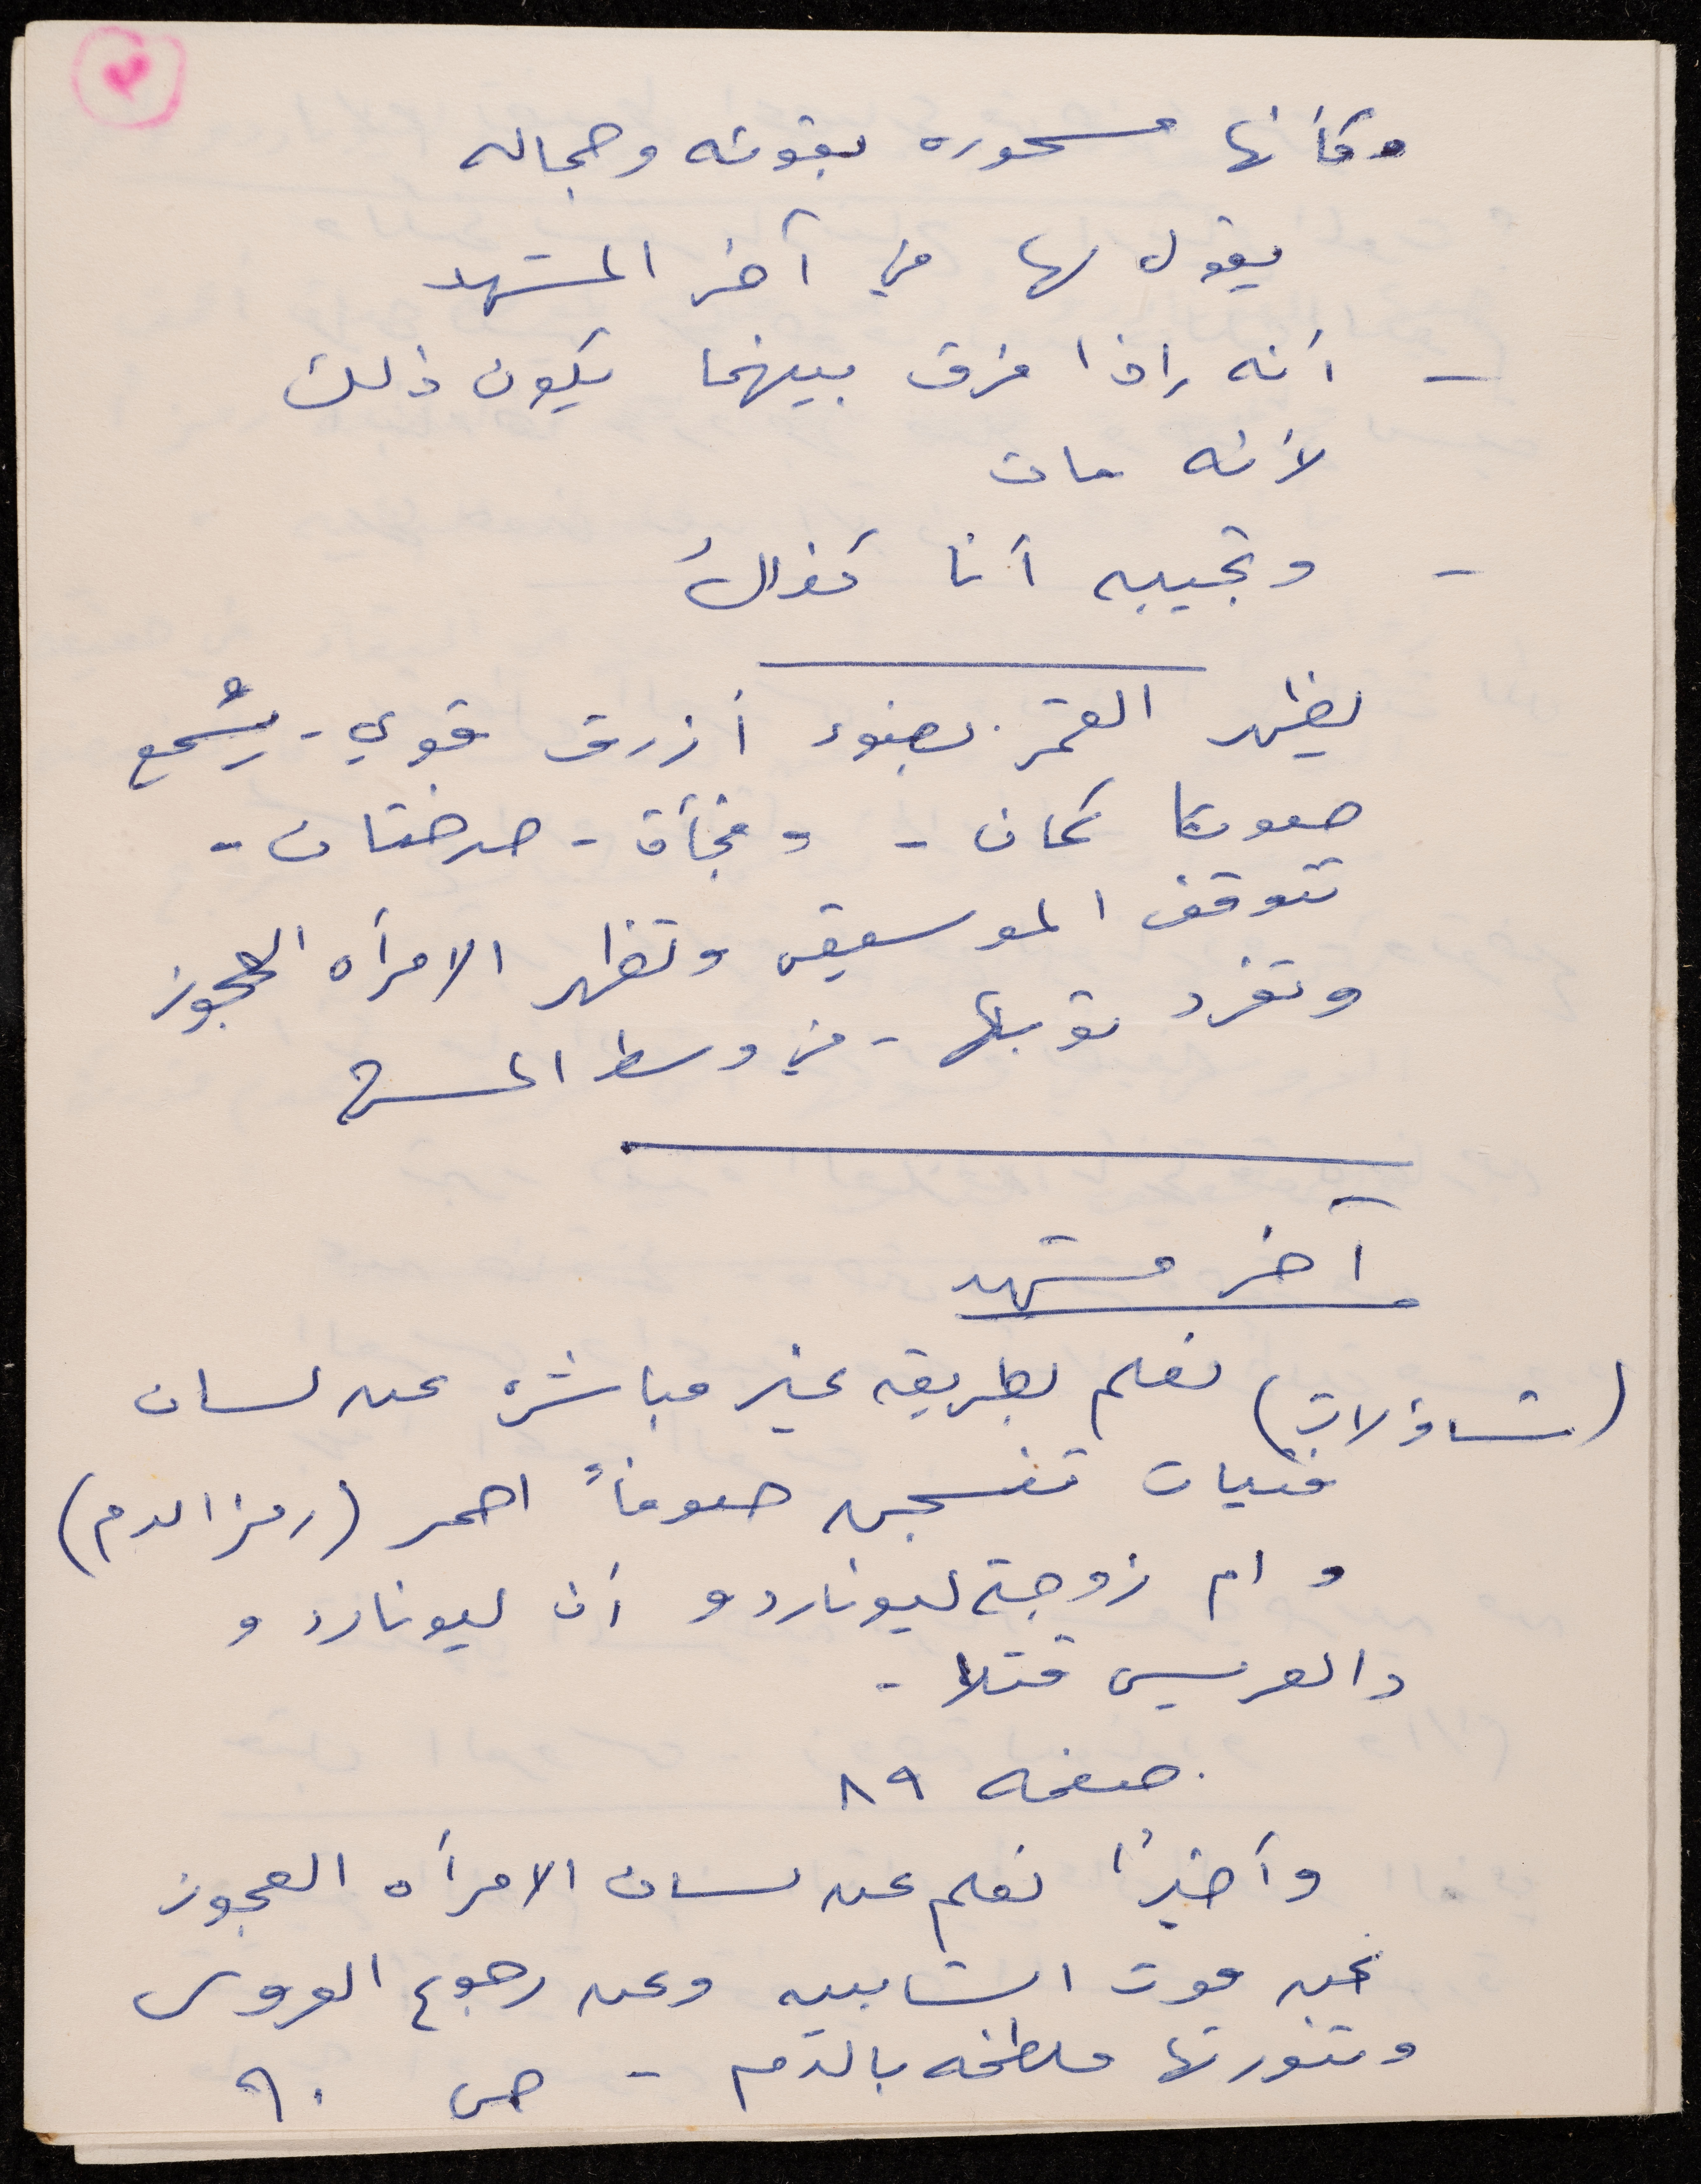 وكأنها مسحوره بقوته وجماله
يقول لها في آخر المشهد
- أنه إذا فرق بينهما يكون ذلك
لأنه مات
- وتجيبه أنا كذلك
يظهر القمر بضوء أزرق قوي - يُسمع
صوتا كمان - وفجأة - صرختان -
تتوقف الموسيقى وتظهر الامرأه العجوز
وتفرد ثوبها - في وسط المسرح
آخر مشهد
(تساؤلات) نعلم بطريقه غير مباشره عن لسان
فتيات تنسجن صوفاً احمر (رمز الدم)
و ام زوجة ليوناردو أن ليوناردو
والعريس قتلا -
صفحه ٨٩
وأخيرًا نعلم عن لسان الامرأه العجوز
عن موت الشابين وعن رجوع العروس
وتنورتها ملطخه بالدم - ص ٩٠